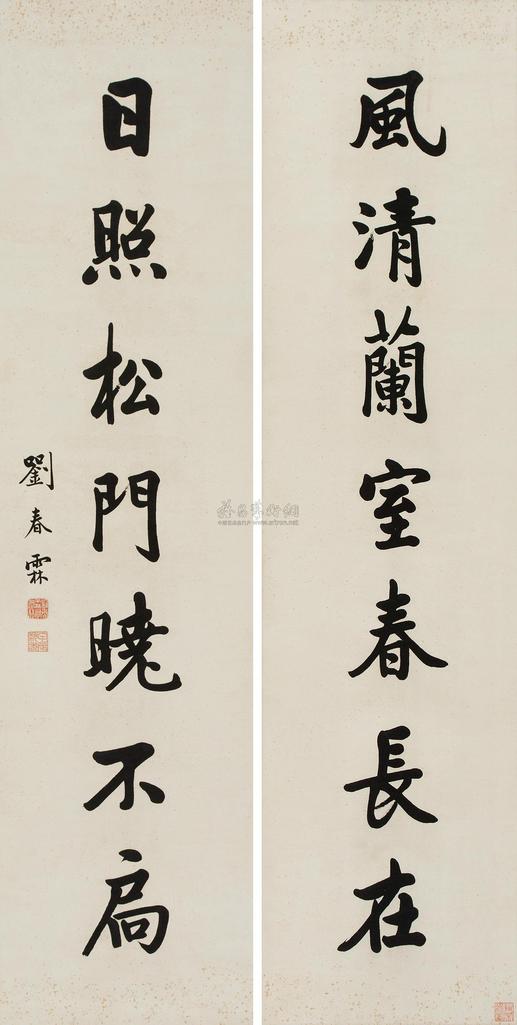 風清蘭室春長在
日照松門曉不扃
劉春霖
www.artron.net